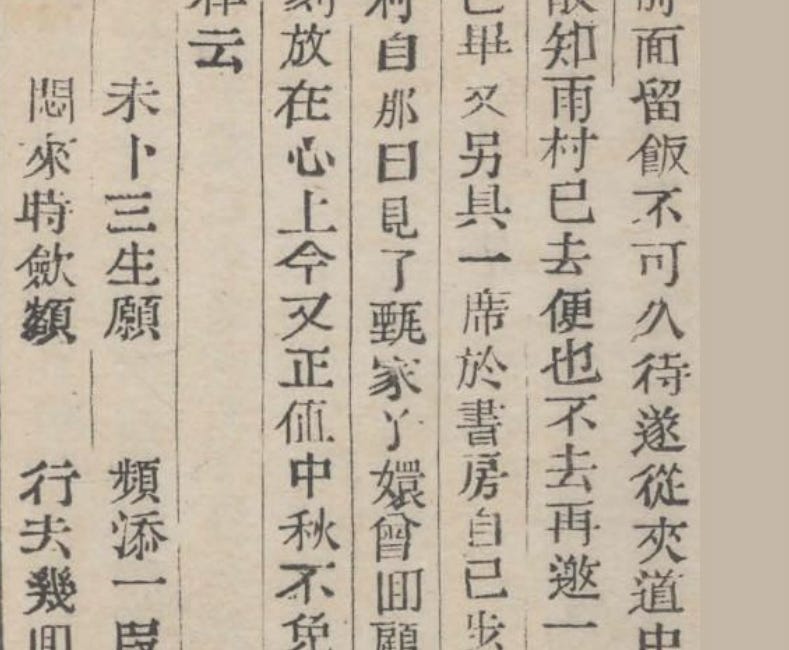 面留飯不可久待遂從夾道中
知雨村已去便也不去再邀一
畢又另具一席於書房自己步
自那日見了甄家丫嬛曾囬顧
放在心上今又正值中秋不免
云
未卜三生願　頻添一叚
悶來時歛額　行去幾囬